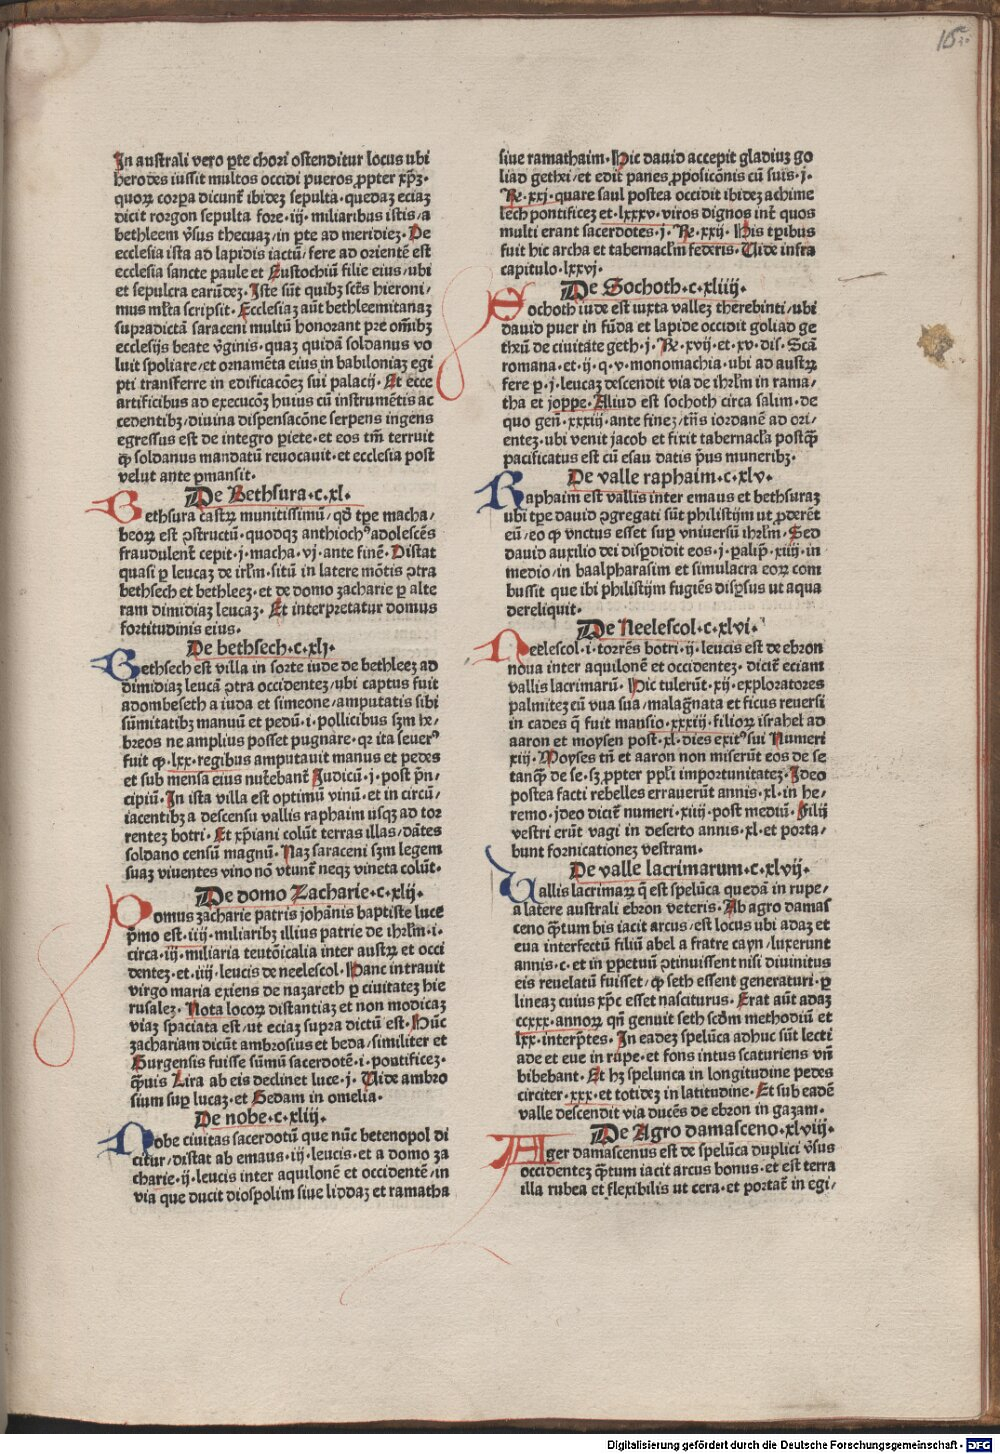 15
In australi vero p̱te chori ostenditur locus ubi
herodes iussit multos occidi pueros ꝓpter xp̄ꝫ·
quoꝝ corp̱a dicunt̄ ibideꝫ sepulta· quedaꝫ eciaꝫ
dicit rozgon sepulta fore·iij· miliaribus istis/a
bethleem v̄sus thecuaꝫ/in p̱te ad meridieꝫ· De
ecclesia ista ad lapidis iactū/fere ad orientē est
ecclesia sancte paule et Eustochiū filie eius/ubi
et sepulcra earūdeꝫ· Iste sūt quibꝫ sct̄s hieroni/
mus ml̄ta scripsit· Ecclesiaꝫ aūt bethleemitanaꝫ
supradictā saraceni multū honorant pre om̄ibꝫ
ecclesijs beate v̄ginis· quaꝫ quidā soldanus vo
luit spoliare/et ornamēta eius in babiloniaꝫ egi
pti transferre in edificacōeꝫ sui palacij· Et ecce
artificibus ad execucōꝫ huius cū instrumētis ac
cedentibꝫ/diuina dispensacōne serpens ingens
egressus est de integro p̱iete· et eos tm̄ terruit
ꝙ soldanus mandatū reuocauit· et ecclesia post
velut ante p̱mansit·
De Bethsura·c·xl·
Bethsura castꝝ munitissimū/ qd̄ tp̱e macha/
beoꝝ est ꝯstructū· quodqꝫ anthiochꝰ adolescēs
fraudulent̄ cepit·j·macha·vj·ante finē· Distat
quasi p̱ leucaꝫ de irl̄m· sitū in latere mōtis ꝯtra
bethsech et bethleeꝫ· et de domo zacharie p̱ alte
ram dimidiaꝫ leucaꝫ· Et interpretatur domus
fortitudinis eius·
De bethsech·c·xlj·
Bethsech est villa in sorte iude de bethleeꝫ ad
dimidiaꝫ leucā ꝯtra occidenteꝫ/ubi captus fuit
adombeseth a iuda et simeone/amputatis sibi
sūmitatibꝫ manuū et pedū·i·pollicibus sꝫm he/
breos ne amplius posset pugnare· qꝛ ita seuerꝰ
fuit ꝙ·lxx·regibus amputauit manus et pedes
et sub mensa eius nut̄ebant̄ Judicū·j·post p̄n/
cipiū· In ista villa est optimū vinū· et in circū/
iacentibꝫ a descensu vallis raphaim usqꝫ ad tor
rentez botri· Et xp̄iani colūt terras illas/dātes
soldano censū magnū· Naꝫ saraceni sꝫm legem
suaꝫ viuentes vino nō vtunt̄ neqꝫ vineta colūt·
De domo Zacharie·c·xlij·
Domus zacharie patris johānis baptiste luce
p̄mo est·iiij·miliaribꝫ illius patrie de ihrl̄m·i·
circa·iij·miliaria teutōicalia inter austꝝ et occi
denteꝫ·et·iiij·leucis de neelescol· Hanc intrauit
virgo maria exiens de nazareth p̱ ciuitateꝫ hie
rusaleꝫ· Nota locoꝝ distantiaꝫ et non modicaꝫ
viaꝫ spaciata est/ut eciaꝫ supra dictū est· Hūc
zachariam dicūt ambrosius et beda/similiter et
Burgensis fuisse sūmū sacerdotē·i·pontificeꝫ·
q̄uis Lira ab eis declinet luce·j· Vide ambro
sium sup̱ lucaꝫ·et Bedam in omelia·
De nobe·c·xliij·
Nobe ciuitas sacerdotū que nūc betenopol di
citur/distat ab emaus·iij·leucis·et a domo za
charie·ij·leucis inter aquilonē et occidentē/in
via que ducit diospolim siue liddaꝫ et ramatha
siue ramathaim· Hic dauid accepit gladiuꝫ go
liad gethei/et edit panes ꝓposicōnis cū suis·j·
Re·xxj·quare saul postea occidit ibideꝫ achime
lech pontificeꝫ et·lxxxv·viros dignos int̄ quos
multi erant sacerdotes·j·Re·xxij· His tp̱ribus
fuit hic archa et tabernacl̄m federis· Vide infra
capitulo·lxxvj·
De Sochoth·c·xliiij·
Sochoth iude est iuxta valleꝫ therebinti/ubi
dauid puer in fūda et lapide occidit goliad ge
theū de ciuitate geth·j·Re·xvij·et·xv·dis·Scā
romana·et·ij·q·v·monomachia·ubi ad austꝝ
fere p̱·j·leucaꝫ descendit via de ihrl̄m in rama/
tha et joppe· Aliud est sochoth circa salim·de
quo gen̄·xxxiij·ante fineꝫ/tn̄s iordanē ad ori/
enteꝫ·ubi venit jacob et fixit tabernacl̄a postq̄ꝫ
pacificatus est cū esau datis p̄us muneribꝫ·
De valle raphaim·c·xlv·
Raphaim est vallis inter emaus et bethsuraꝫ
ubi tp̱e dauid ꝯgregati sūt philistijm ut ꝓderēt
eū/eo ꝙ vnctus esset sup̱ vniuersū ihrl̄m· Sed
dauid auxilio dei disp̱didit eos·j·p̱alip̄·xiiij·in
medio/in baalpharasim et simulacra eoꝝ com
bussit que ibi philistijm fugiēs disp̱sus ut aqua
dereliquit·
De Neelescol·c·xlvi·
Neelescol·i·torrēs botri·ij·leucis est de ebron
noua inter aquilonē et occidenteꝫ·dicit̄ eciam
vallis lacrimarū· Hic tulerūt·xij·exploratores
palmiteꝫ cū vua sua/malag̈nata et ficus reuersi
in cades q̄ fuit mansio·xxxiij·filioꝝ israhel ad
aaron et moysen post·xl·dies exitꝰ sui Numeri
xiij· Moyses tn̄ et aaron non miserūt eos de se
tanq̄ꝫ de se·sꝫ ꝓpter ppl̄i importunitateꝫ· Ideo
postea facti rebelles errauerūt annis·xl·in he/
remo·jdeo dicit̄ numeri·xiiij·post mediū· Filij
vestri erūt vagi in deserto annis·xl·et porta/
bunt fornicationeꝫ vestram·
De valle lacrimarum·c·xlvij·
Vallis lacrimaꝝ q̄ est spelūca quedā in rupe/
a latere australi ebron veteris· Ab agro damas
ceno q̄tum bis iacit arcus/est locus ubi adaꝫ et
eua interfectū filiū abel a fratre cayn/luxerunt
annis·c·et in p̱petuū ꝯtinuissent nisi diuinitus
eis reuelatū fuisset/ꝙ seth essent generaturi·p̱
lineaꝫ cuius xp̄c esset nasciturus· Erat aūt adaꝫ
ccxxx·annoꝝ qn̄ genuit seth scd̄m methodiū et
lxx·interp̄tes· In eadeꝫ spelūca adhuc sūt lecti
ade et eue in rupe·et fons intus scaturiens vn̄
bibebant· Et hꝫ spelunca in longitudine pedes
circiter·xxx·et totideꝫ in latitudine· Et sub eadē
valle descendit via ducēs de ebron in gazam·
De Agro damasceno·xlviij·
Ager damascenus est de spelūca duplici v̄sus
occidenteꝫ q̄tum iacit arcus bonus·et est terra
illa rubea et flexibilis ut cera·et portat̄ in egi/
Digitalisierung gefördert durch die Deutsche Forschungsgemeinschaft - DFG